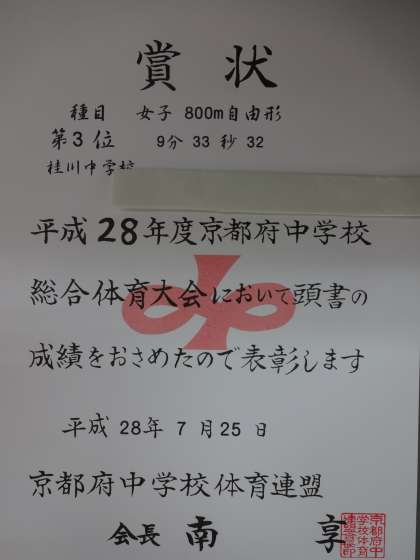 賞状
種目 女子 800m自由形
第3位 9分 33 秒 32
桂川中学校
平成28年度京都府中学校
総合体育大会において頭書の
成績をおさめたので表彰します
平成 28年 7 月25 日
京都府中学校体育連盟
会長 南 享